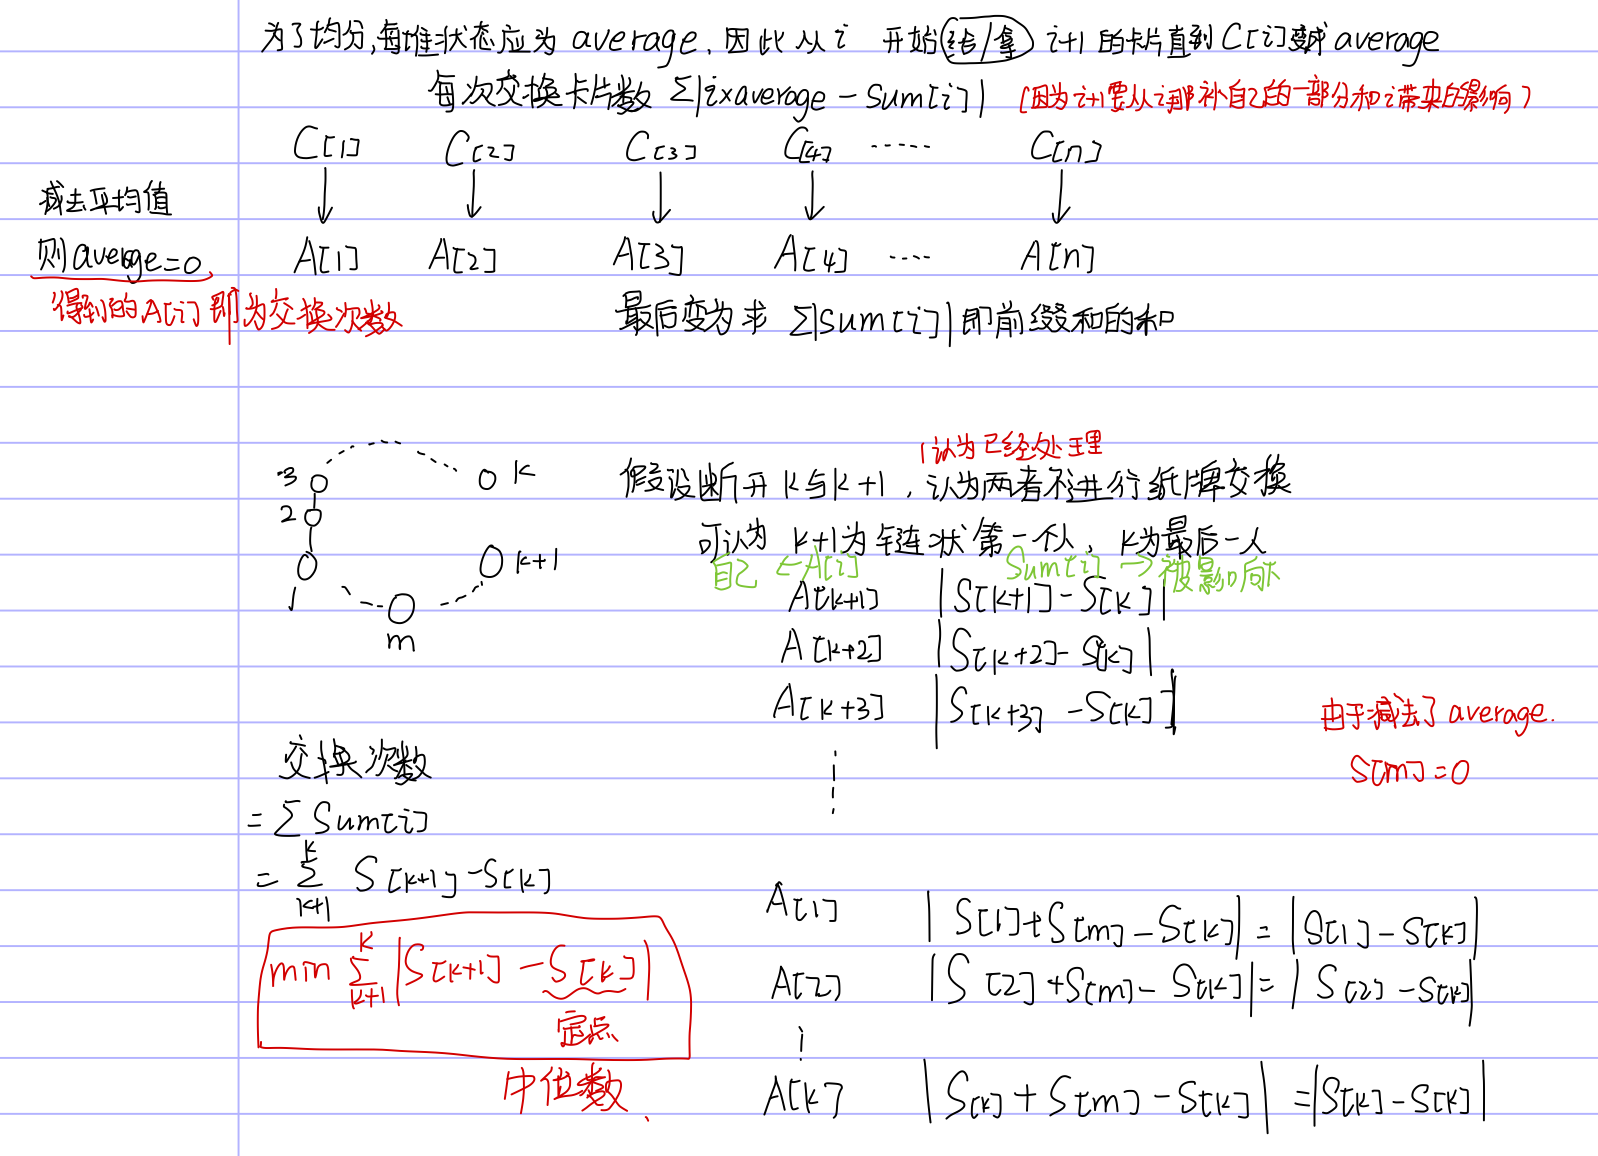 为了均分,每堆状态应为 average. 因此从 i 开始(给/拿) i+1 的卡片直到 C[i]变成 average
每次交换卡片数 Σ|i×average - Sum[i]| (因为i+1要从i那补自己的一部分和i带来的影响)
C[1] C[2] C[3] C[4] ····· C[n]
减去平均值
则 average=0,
A[1] A[2] A[3] A[4] ···· A[n]
得到的A[i]即为交换次数
最后变为求 Σ|Sum[i]| 即前缀和的和
认为已经处理
3 k
2
假设断开 k与k+1, 认为两者不进行纸牌交换
可认为 k+1为链状第一个人, k为最后一人
k+1
自己 ←A[i] Sum[i] → 被影响
1
m
A[k+1] |S[k+1]-S[k]|
A[k+2] |S[k+2]-S[k]|
A[k+3] |S[k+3]-S[k]|
由于减去了 average.
S[m]=0
交换次数
= Σ Sum[i]
k
= Σ S[k+1]-S[k]
k+1
A[1] |S[1]+S[m]-S[k]| = |S[1]-S[k]|
k
min Σ |S[k+1] - S[k]|
k+1
定点
A[2] |S[2]+S[m]-S[k]| = |S[2]-S[k]|
中位数
A[k] |S[k]+S[m]-S[k]| = |S[k]-S[k]|